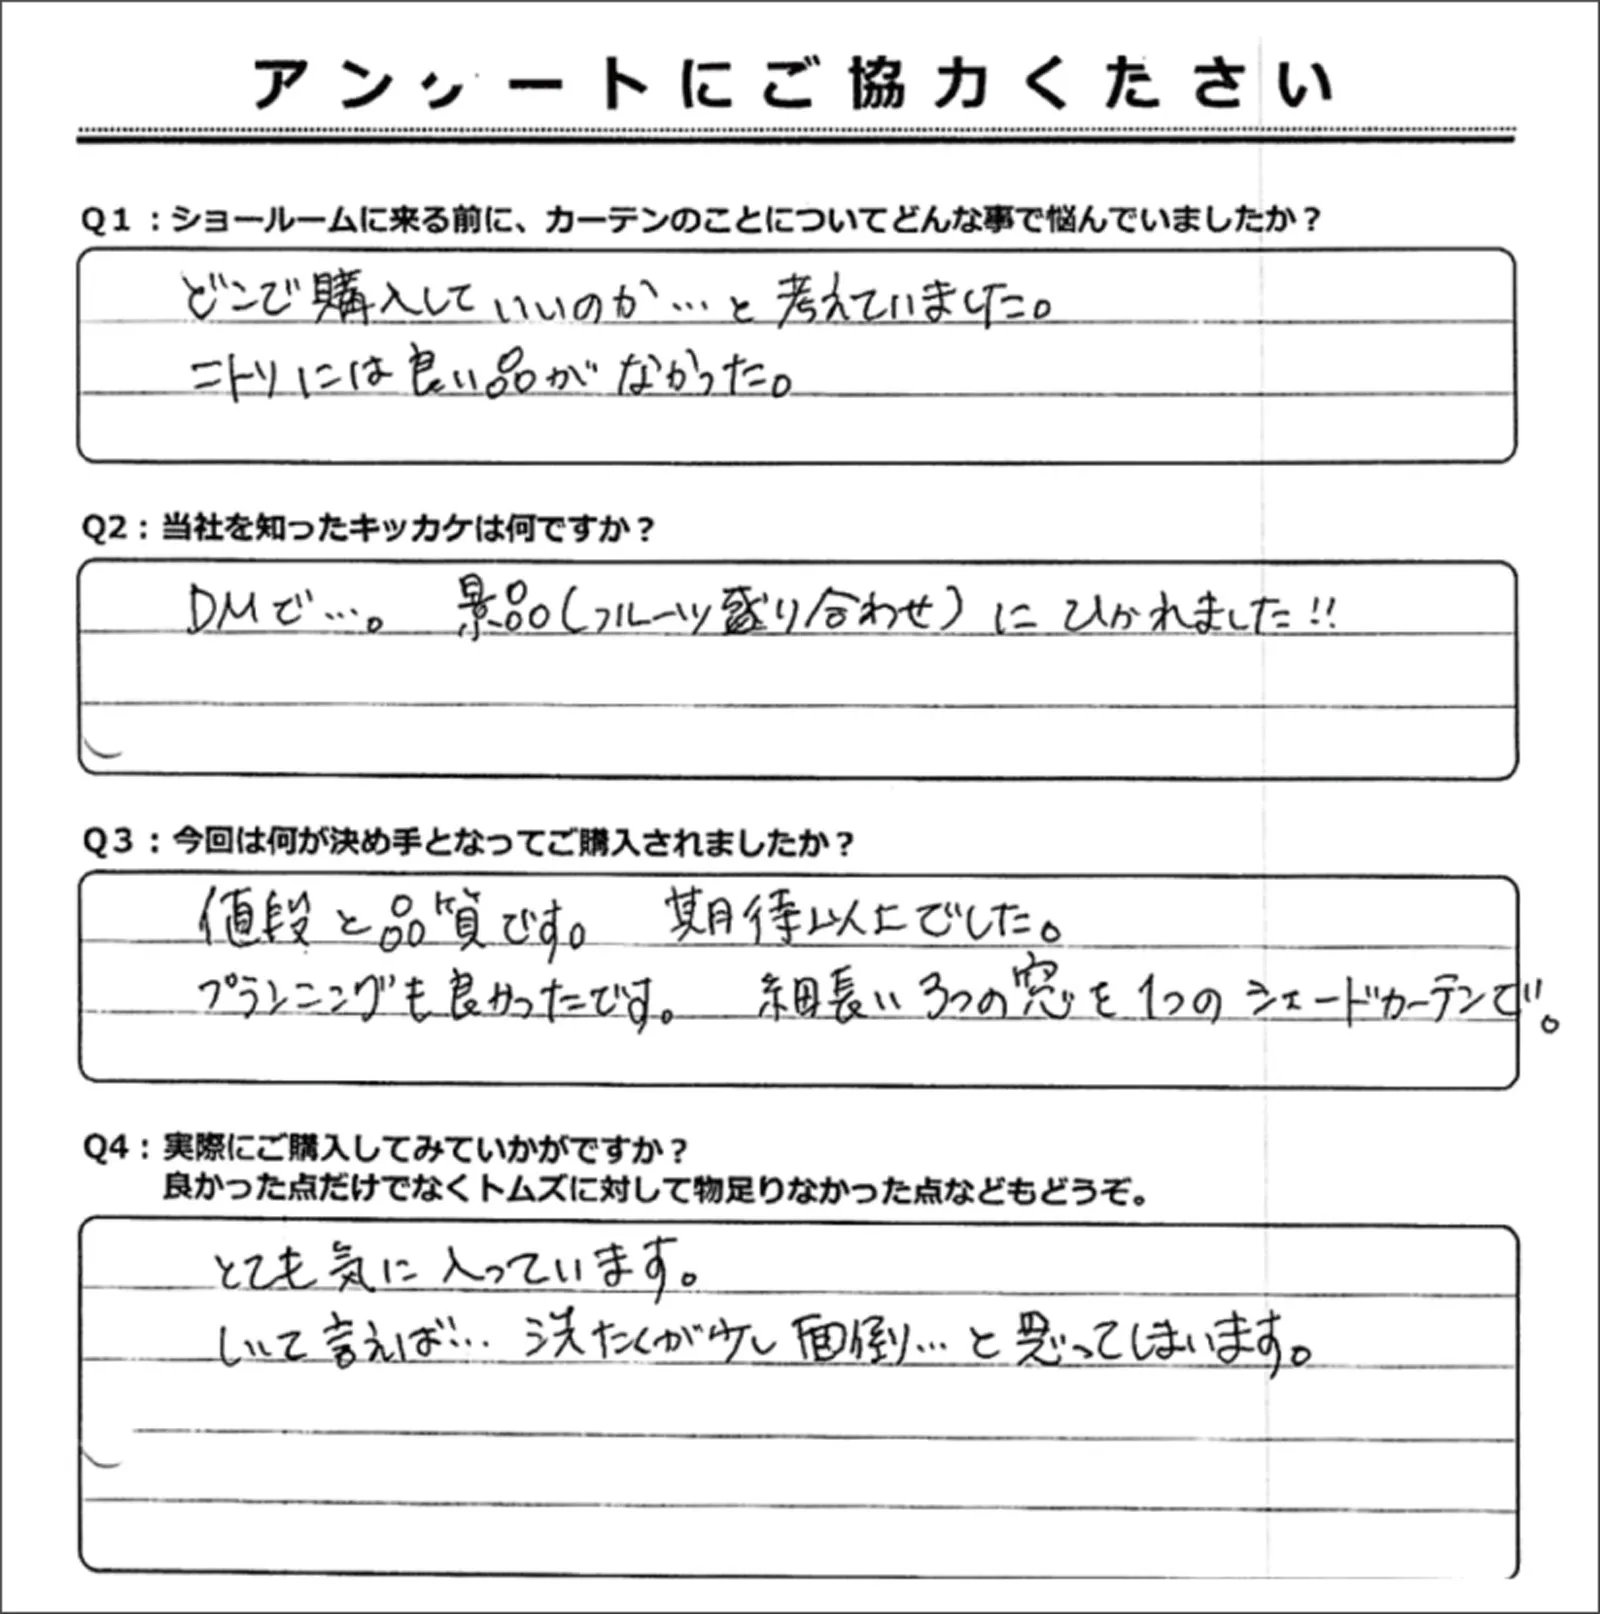 アンケートにご協力ください
Q1：ショールームに来る前に、カーテンのことについてどんな事で悩んでいましたか？
どこで購入していいのか…と考えていました。
ニトリには良い品がなかった。
Q2：当社を知ったキッカケは何ですか？
DMで…。 景品(フルーツ盛り合わせ)にひかれました!!
Q3：今回は何が決め手となってご購入されましたか？
値段と品質です。 期待以上でした。
プランニングも良かったです。 細長い3つの窓を1つのシェードカーテンで。
Q4：実際にご購入してみていかがですか？
良かった点だけでなくトムズに対して物足りなかった点などもどうぞ。
とても気に入っています。
しいて言えば… 洗たくが少し面倒…と思ってしまいます。